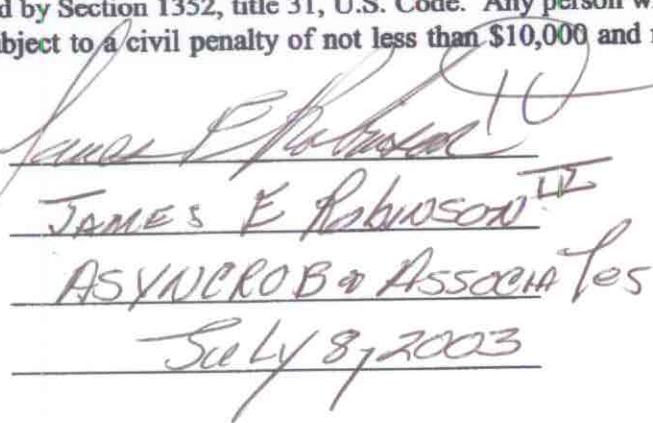 d by Section 1352, title 31, U.S. Code. Any person w
ubject to a civil penalty of not less than $10,000 and
James E Robinson
JAMES E RobiNSON IV
ASYNCROB & ASSOCIATes
July 8, 2003